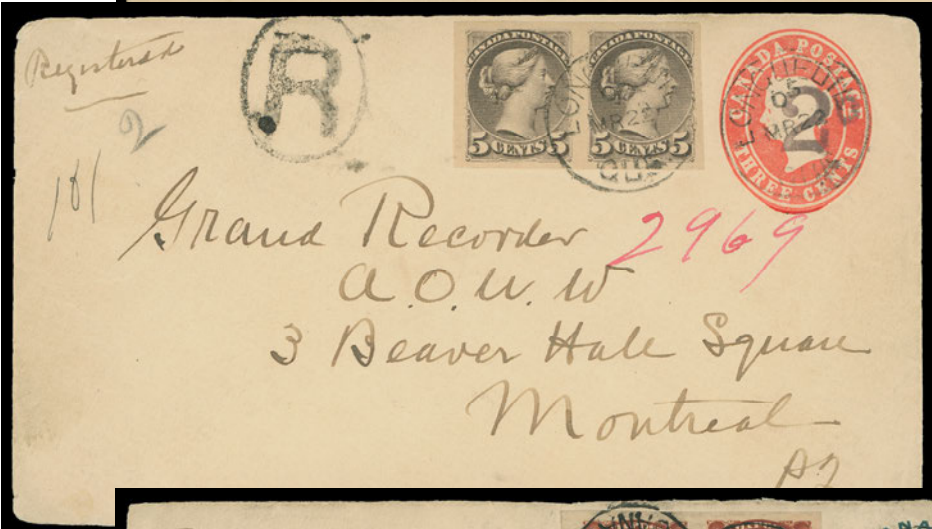 Registered
R
2
181
CANADA POSTAGE
5 CENTS 5
CANADA POSTAGE
5 CENTS 5
MR 22
QUE
CANADA POSTAGE
2
THREE CENTS
05
MR 22
Grand Recorder 2969
A.O.U.W
3 Beaver Hall Square
Montreal